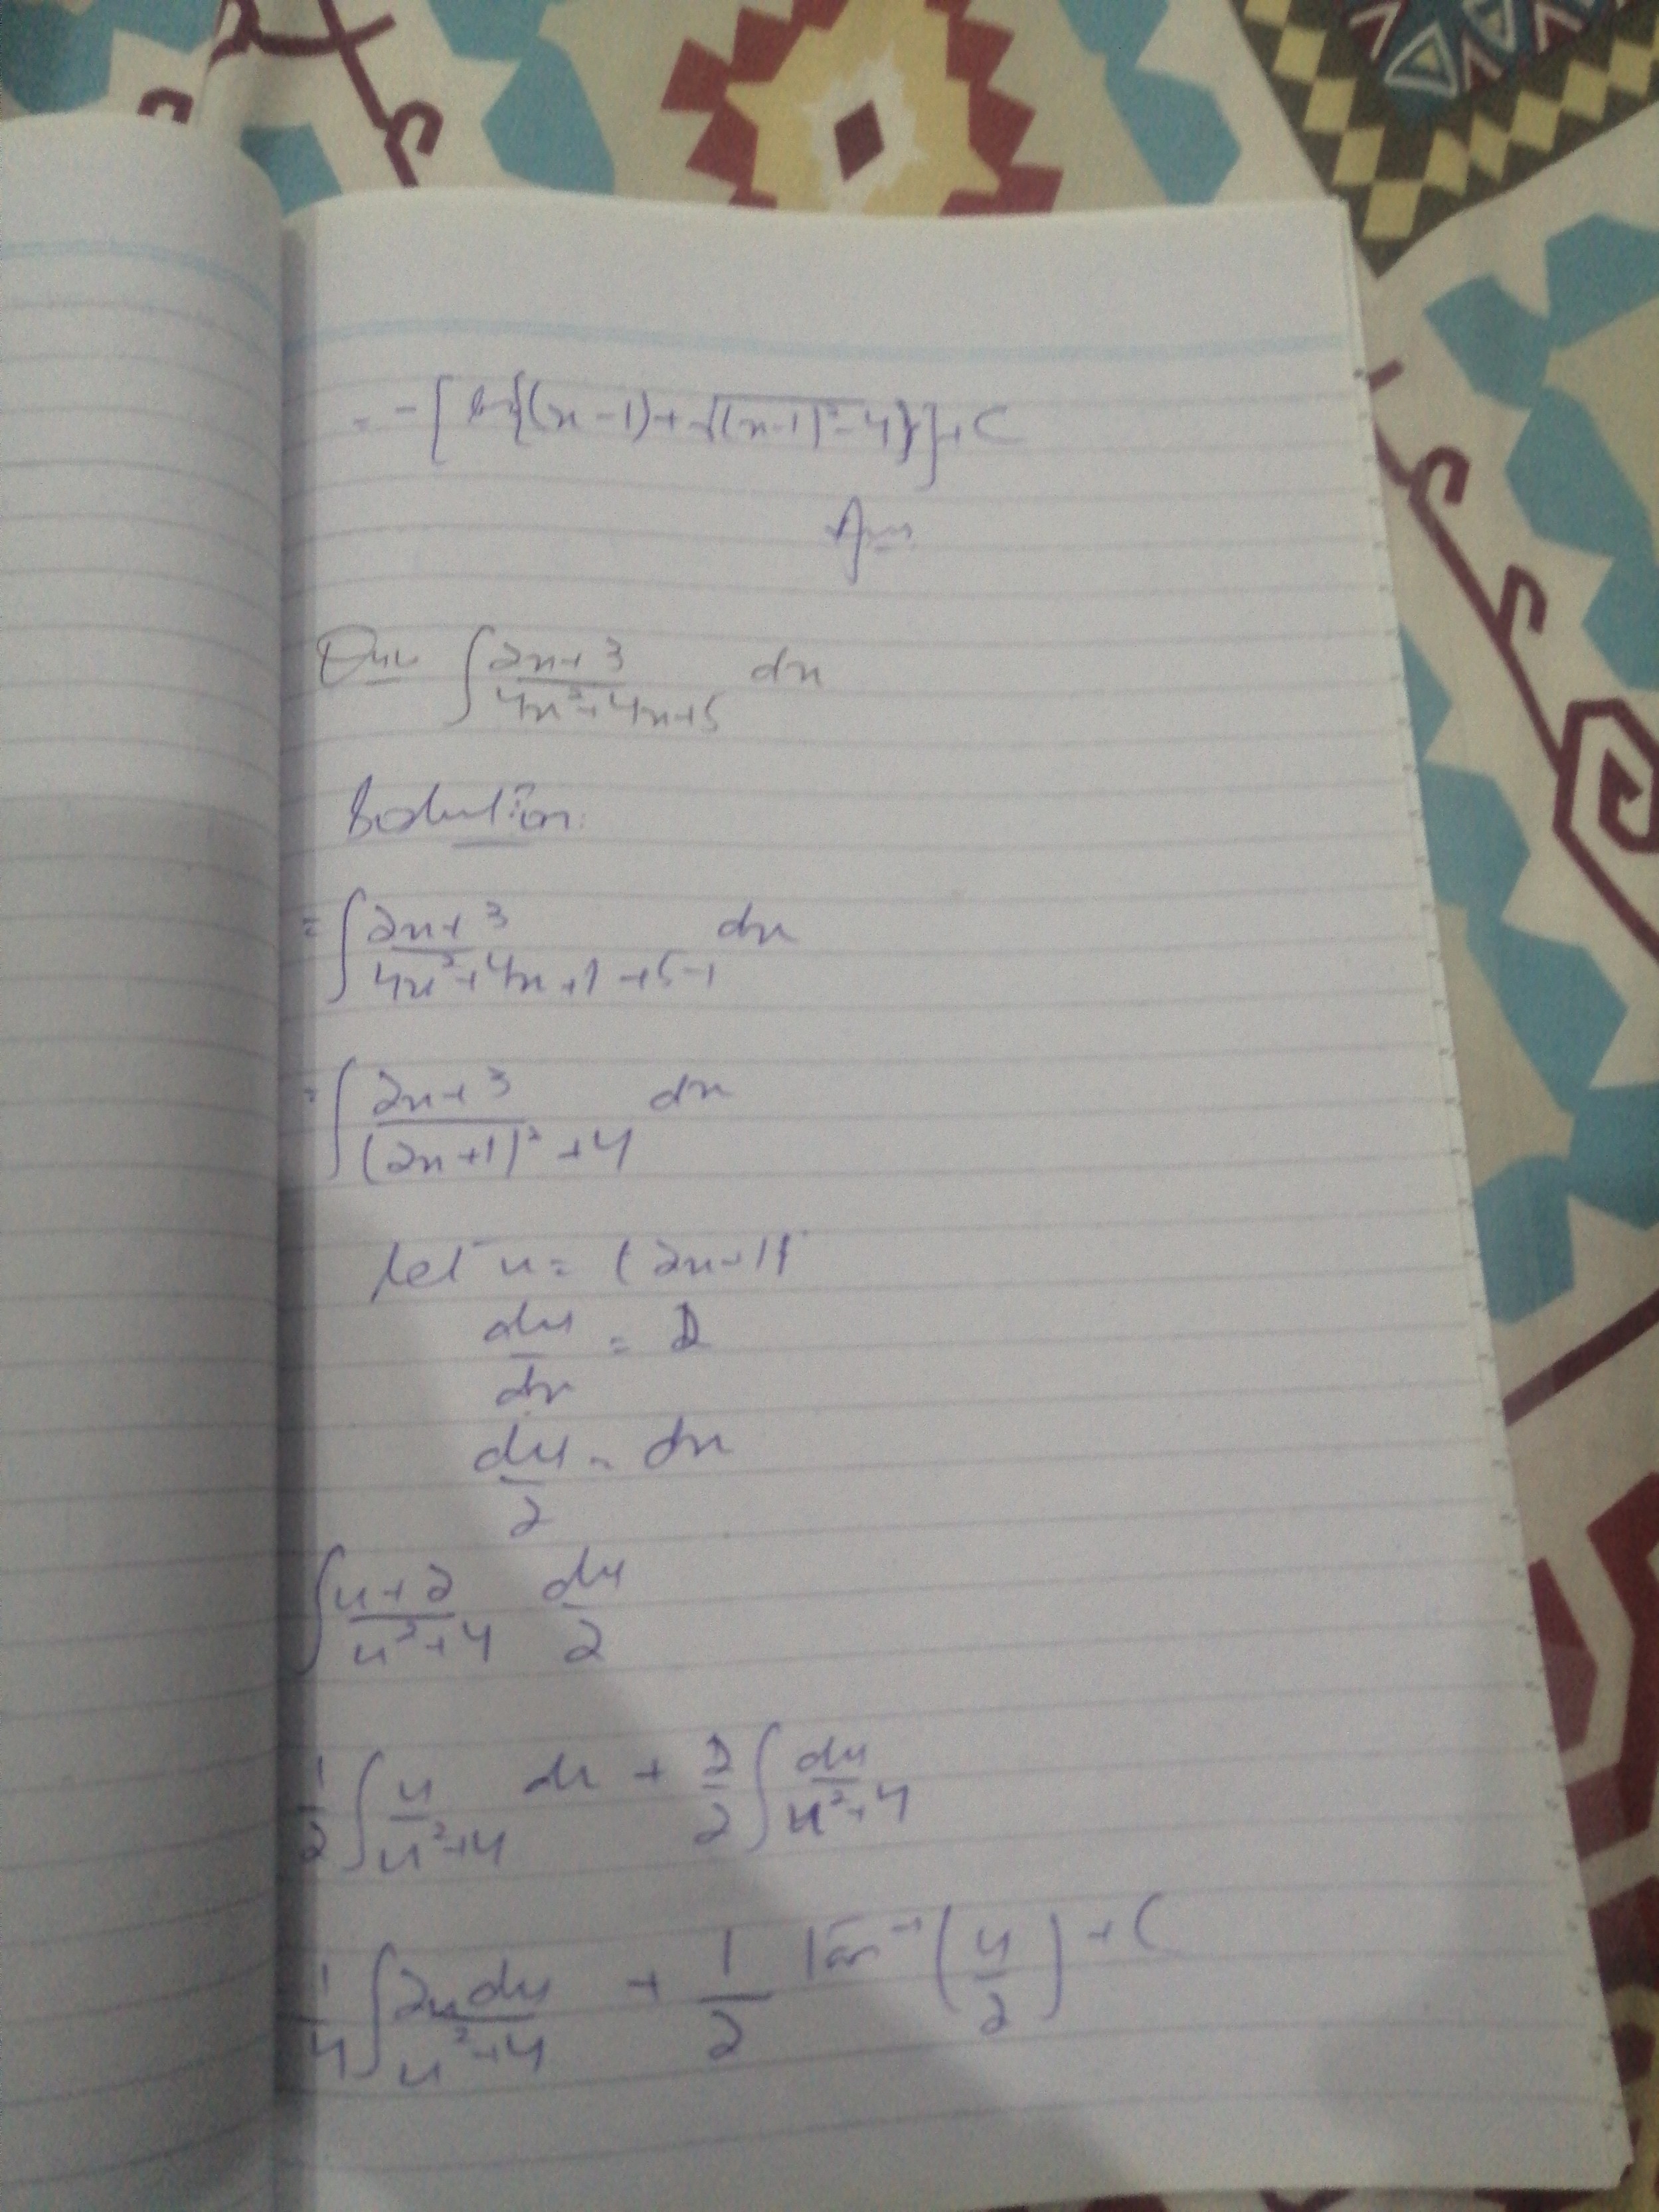 = - [ln{(x-1)+√((x-1)²-4)}]+C
Ans
Que ∫ (2x+3)/(4x²+4x+5) dx
Solution:
= ∫ (2x+3)/(4x²+4x+1+5-1) dx
= ∫ (2x+3)/((2x+1)²+4) dx
Let u = (2x+1)
du/dx = 2
du/2 = dx
∫ (u+2)/(u²+4) du/2
1/2 ∫ u/(u²+4) du + 2/2 ∫ du/(u²+4)
1/4 ∫ 2u du/(u²+4) + 1/2 Tan⁻¹(u/2) + C